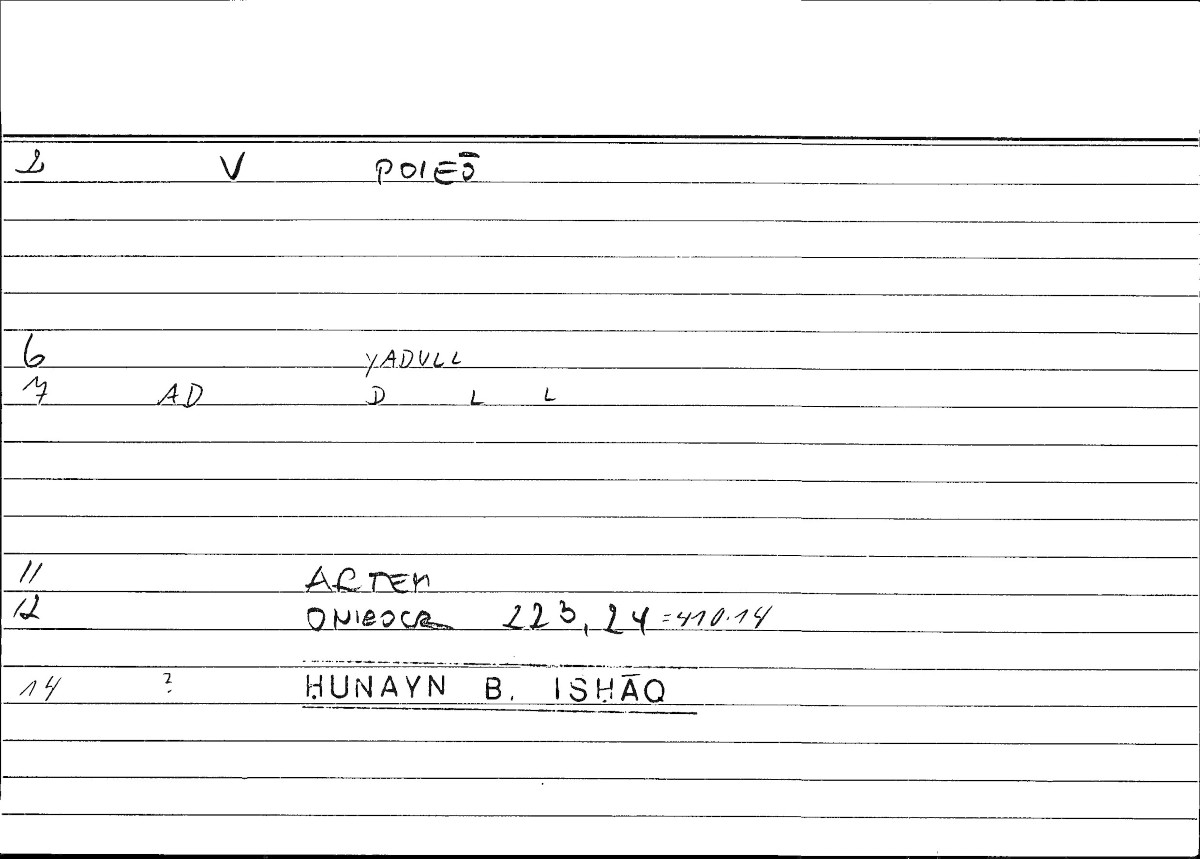 1 V POIEŌ
6 YADULL
7 AD D L L
11 ARTEM
12 ONIROCR 223,24 =410.14
14 ? ḤUNAYN B. ISḤĀQ